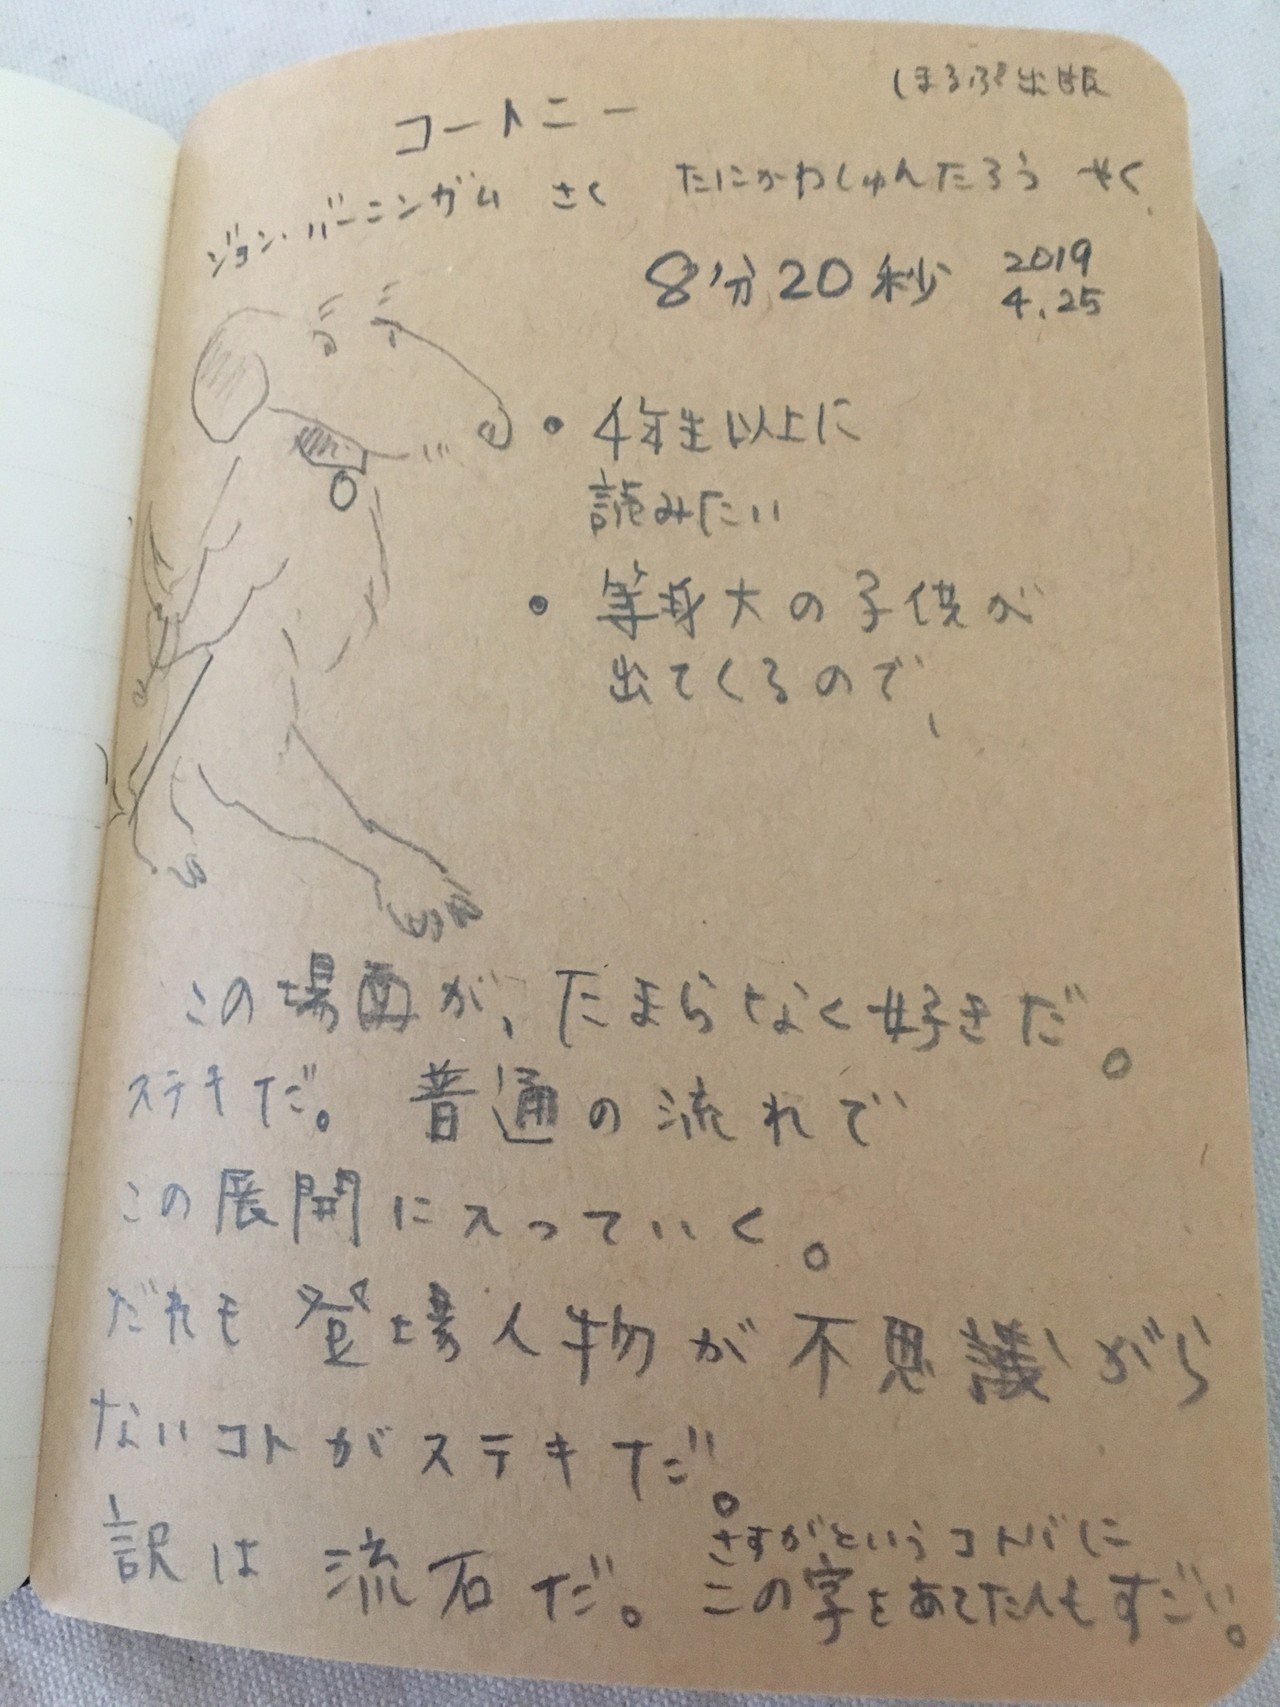 ほるぷ出版
コートニー
ジョン・バーニンガム さく たにかわしゅんたろう やく
8分20秒 2019
4.25
• 4年生以上に
読みたい
• 等身大の子供が
出てくるので、
この場面が、たまらなく好きだ。
ステキだ。普通の流れで
この展開に入っていく。
だれも登場人物が不思議がら
ないコトがステキだ。
訳は流石だ。さすがというコトバに
この字をあてた人もすごい。